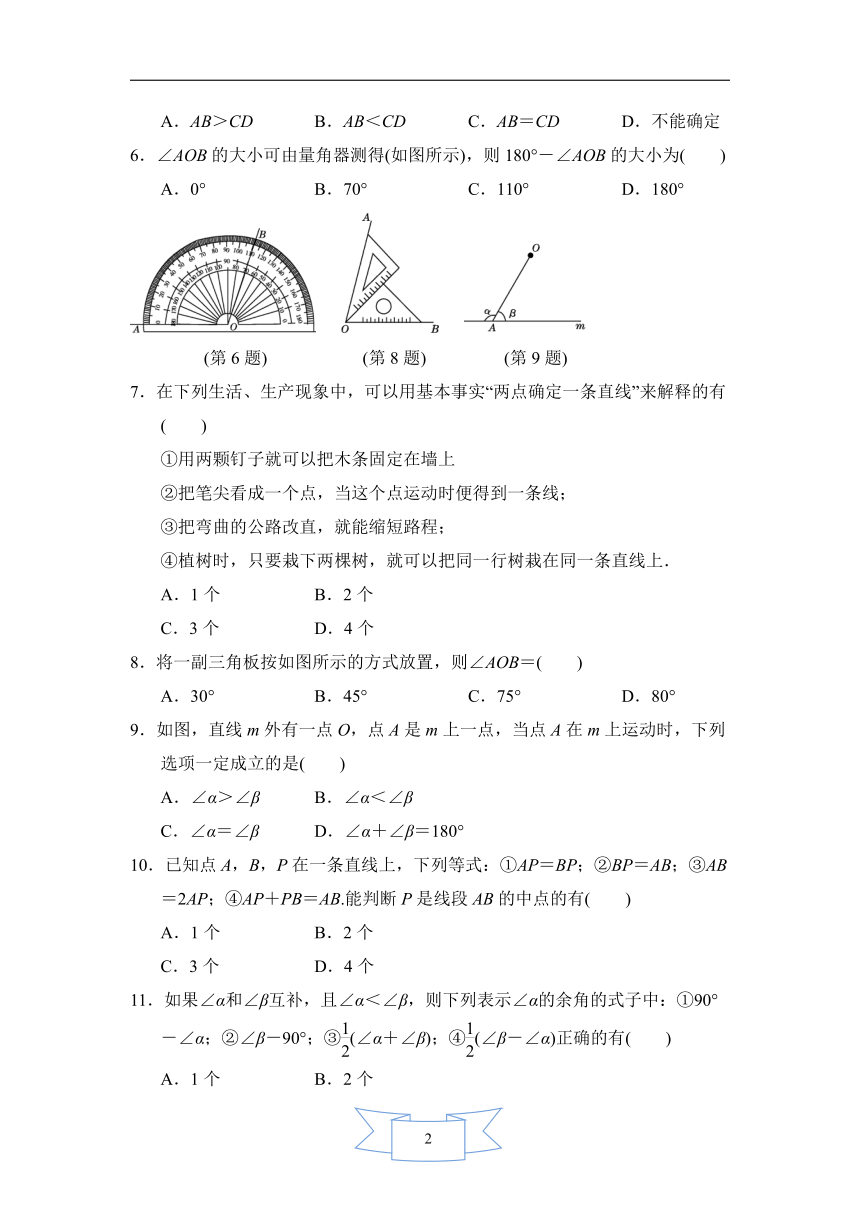 A．AB＞CD B．AB＜CD C．AB＝CD D．不能确定
6．∠AOB的大小可由量角器测得(如图所示)，则180°－∠AOB的大小为(　　)
A．0° B．70° C．110° D．180°
A O B
A O B
O α β A m
(第6题) (第8题) (第9题)
7．在下列生活、生产现象中，可以用基本事实“两点确定一条直线”来解释的有
(　　)
①用两颗钉子就可以把木条固定在墙上
②把笔尖看成一个点，当这个点运动时便得到一条线；
③把弯曲的公路改直，就能缩短路程；
④植树时，只要栽下两棵树，就可以把同一行树栽在同一条直线上．
A．1个 B．2个
C．3个 D．4个
8．将一副三角板按如图所示的方式放置，则∠AOB＝(　　)
A．30° B．45° C．75° D．80°
9．如图，直线m外有一点O，点A是m上一点，当点A在m上运动时，下列
选项一定成立的是(　　)
A．∠α＞∠β B．∠α＜∠β
C．∠α＝∠β D．∠α＋∠β＝180°
10．已知点A，B，P在一条直线上，下列等式：①AP＝BP；②BP＝AB；③AB
＝2AP；④AP＋PB＝AB.能判断P是线段AB的中点的有(　　)
A．1个 B．2个
C．3个 D．4个
11．如果∠α和∠β互补，且∠α＜∠β，则下列表示∠α的余角的式子中：①90°
－∠α；②∠β－90°；③1/2(∠α＋∠β)；④1/2(∠β－∠α)正确的有(　　)
A．1个 B．2个
2